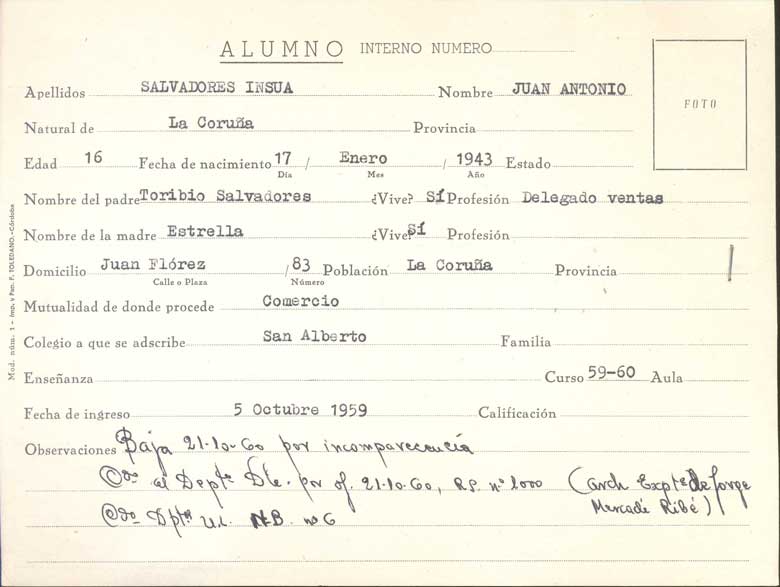 ALUMNO INTERNO NUMERO
Apellidos SALVADORES INSUA Nombre JUAN ANTONIO
FOTO
Natural de La Coruña Provincia
Edad 16 Fecha de nacimiento 17 / Enero / 1943 Estado
Día Mes Año
Nombre del padre Toribio Salvadores ¿Vive? SÍ Profesión Delegado ventas
Nombre de la madre Estrella ¿Vive? SÍ Profesión
Domicilio Juan Flórez / 83 Población La Coruña Provincia
Calle o Plaza Número
Mutualidad de donde procede Comercio
Colegio a que se adscribe San Alberto Familia
Enseñanza Curso 59-60 Aula
Fecha de ingreso 5 Octubre 1959 Calificación
Observaciones Baja 21-10-60 por incomparecencia
al Depte Dte. por of. 21-10-60, RS. nº 1000 (arch Expte de Jorge
Mercadé Ribé)
nº 6
Mod. núm. 1 - Imp. y Pap. F. TOLEDANO.-Córdoba